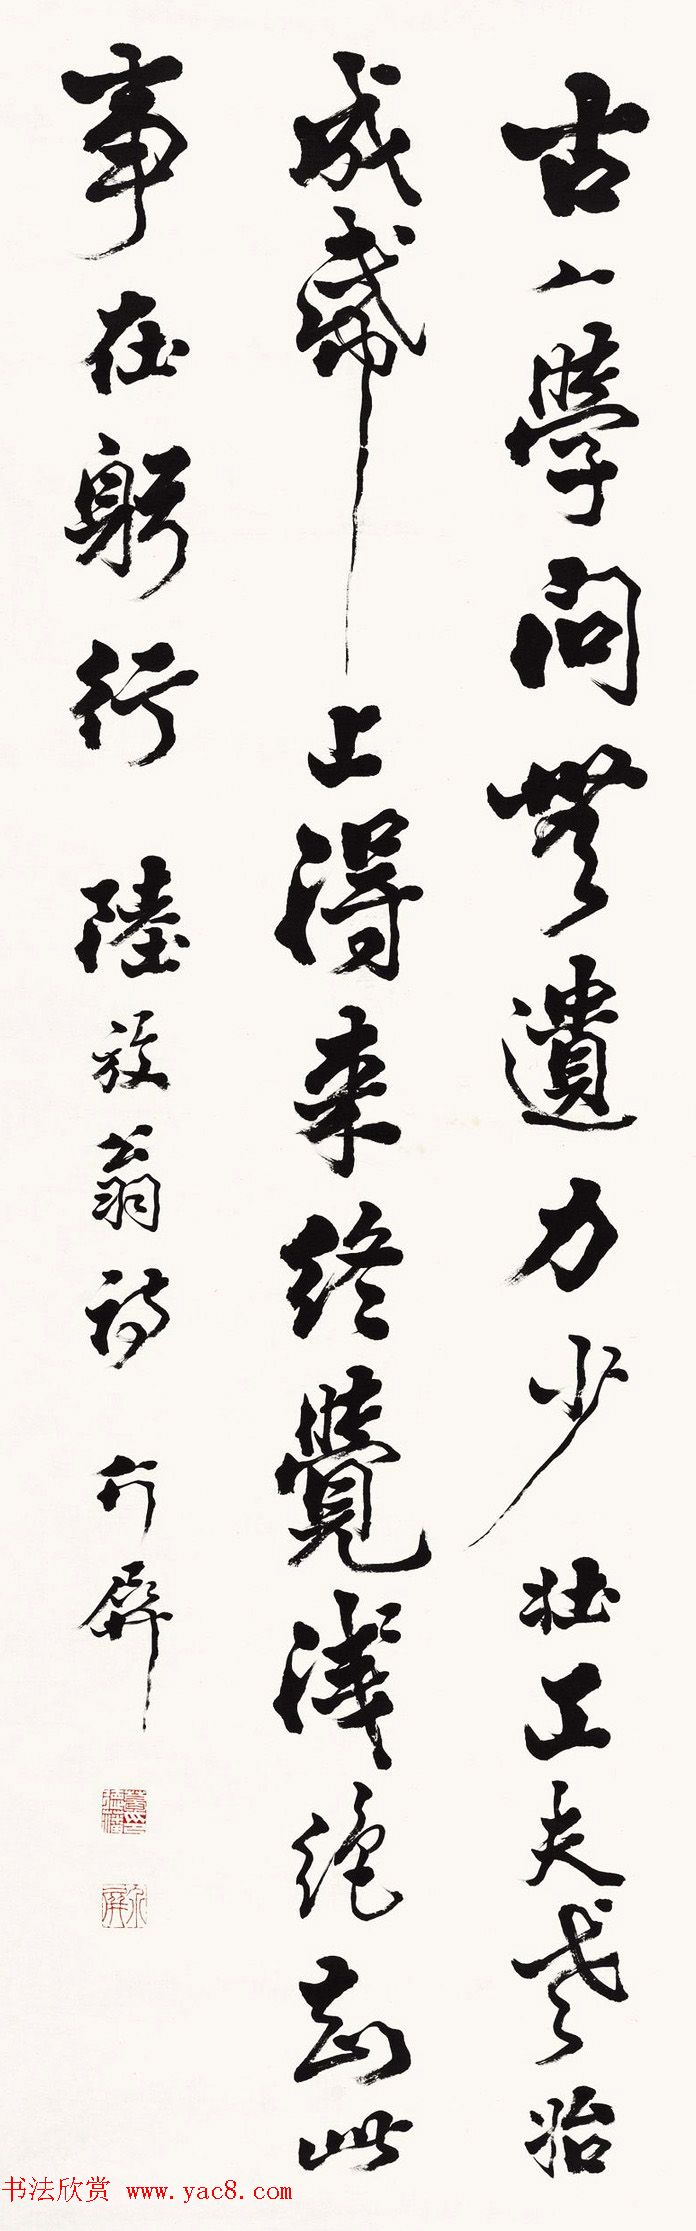 古人學問無遺力少壯工夫老始
成紙上得来終覺淺絕知此
事在躬行 陸放翁詩 介屏
介屏
书法欣赏 www.yac8.com